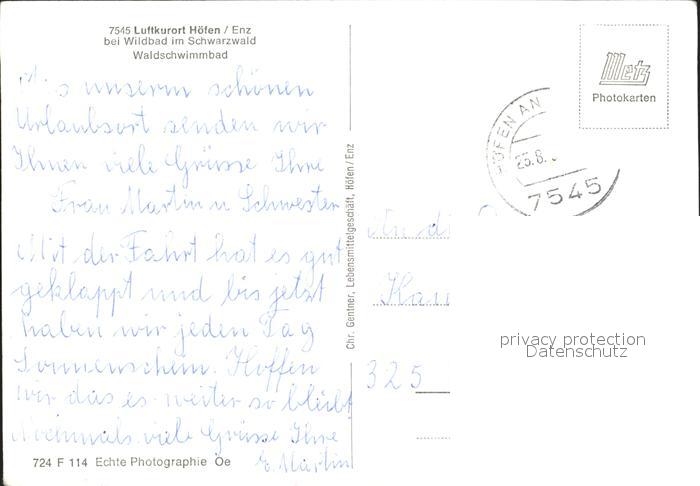 7545 Luftkurort Höfen / Enz
bei Wildbad im Schwarzwald
Waldschwimmbad
Aus unserm schönen
Urlaubsort senden wir
Ihnen viele Grüsse Ihre
Frau Martin u Schwester
Mit der Fahrt hat es gut
geklappt und bis jetzt
haben wir jeden Tag
Sonnenschein. Hoffen
wir das es weiter so bleibt
Nochmals viele Grüsse Ihre
E. Martin
724 F 114 Echte Photographie Oe
Chr. Gentner, Lebensmittelgeschäft, Höfen/Enz
Metz
Photokarten
HÖFEN AN
25.8.
7545
325
privacy protection
Datenschutz